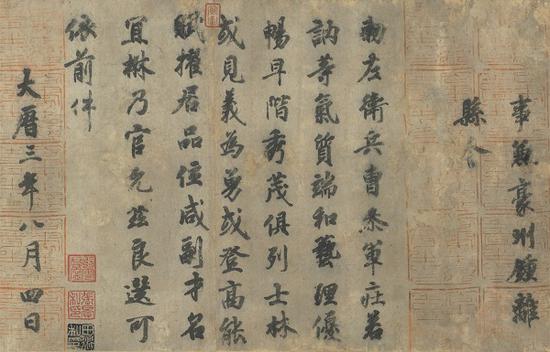 事兼豪州鍾離
縣令
勑左衛兵曹叅軍莊若
訥等氣質端和藝理優
暢早階秀茂俱列士林
或見義為勇或登高能
賦擢居品位咸副才名
宜楙乃官允茲良選可
依前件
大曆三年八月四日